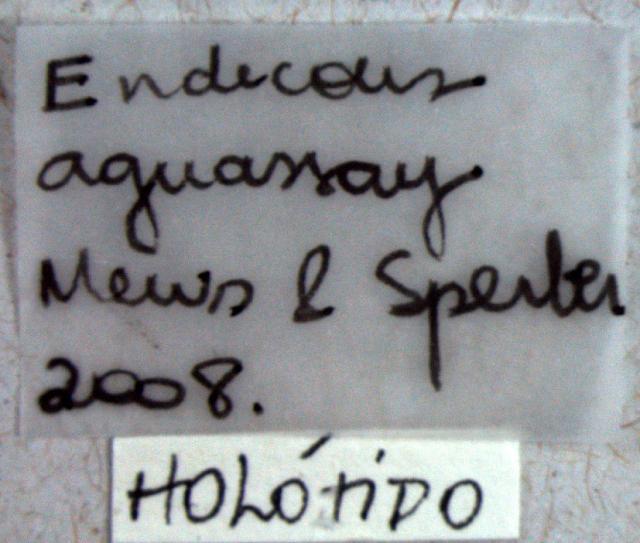 Endecous
aguassay
Mews & Sperber
2008.
HOLÓTIPO